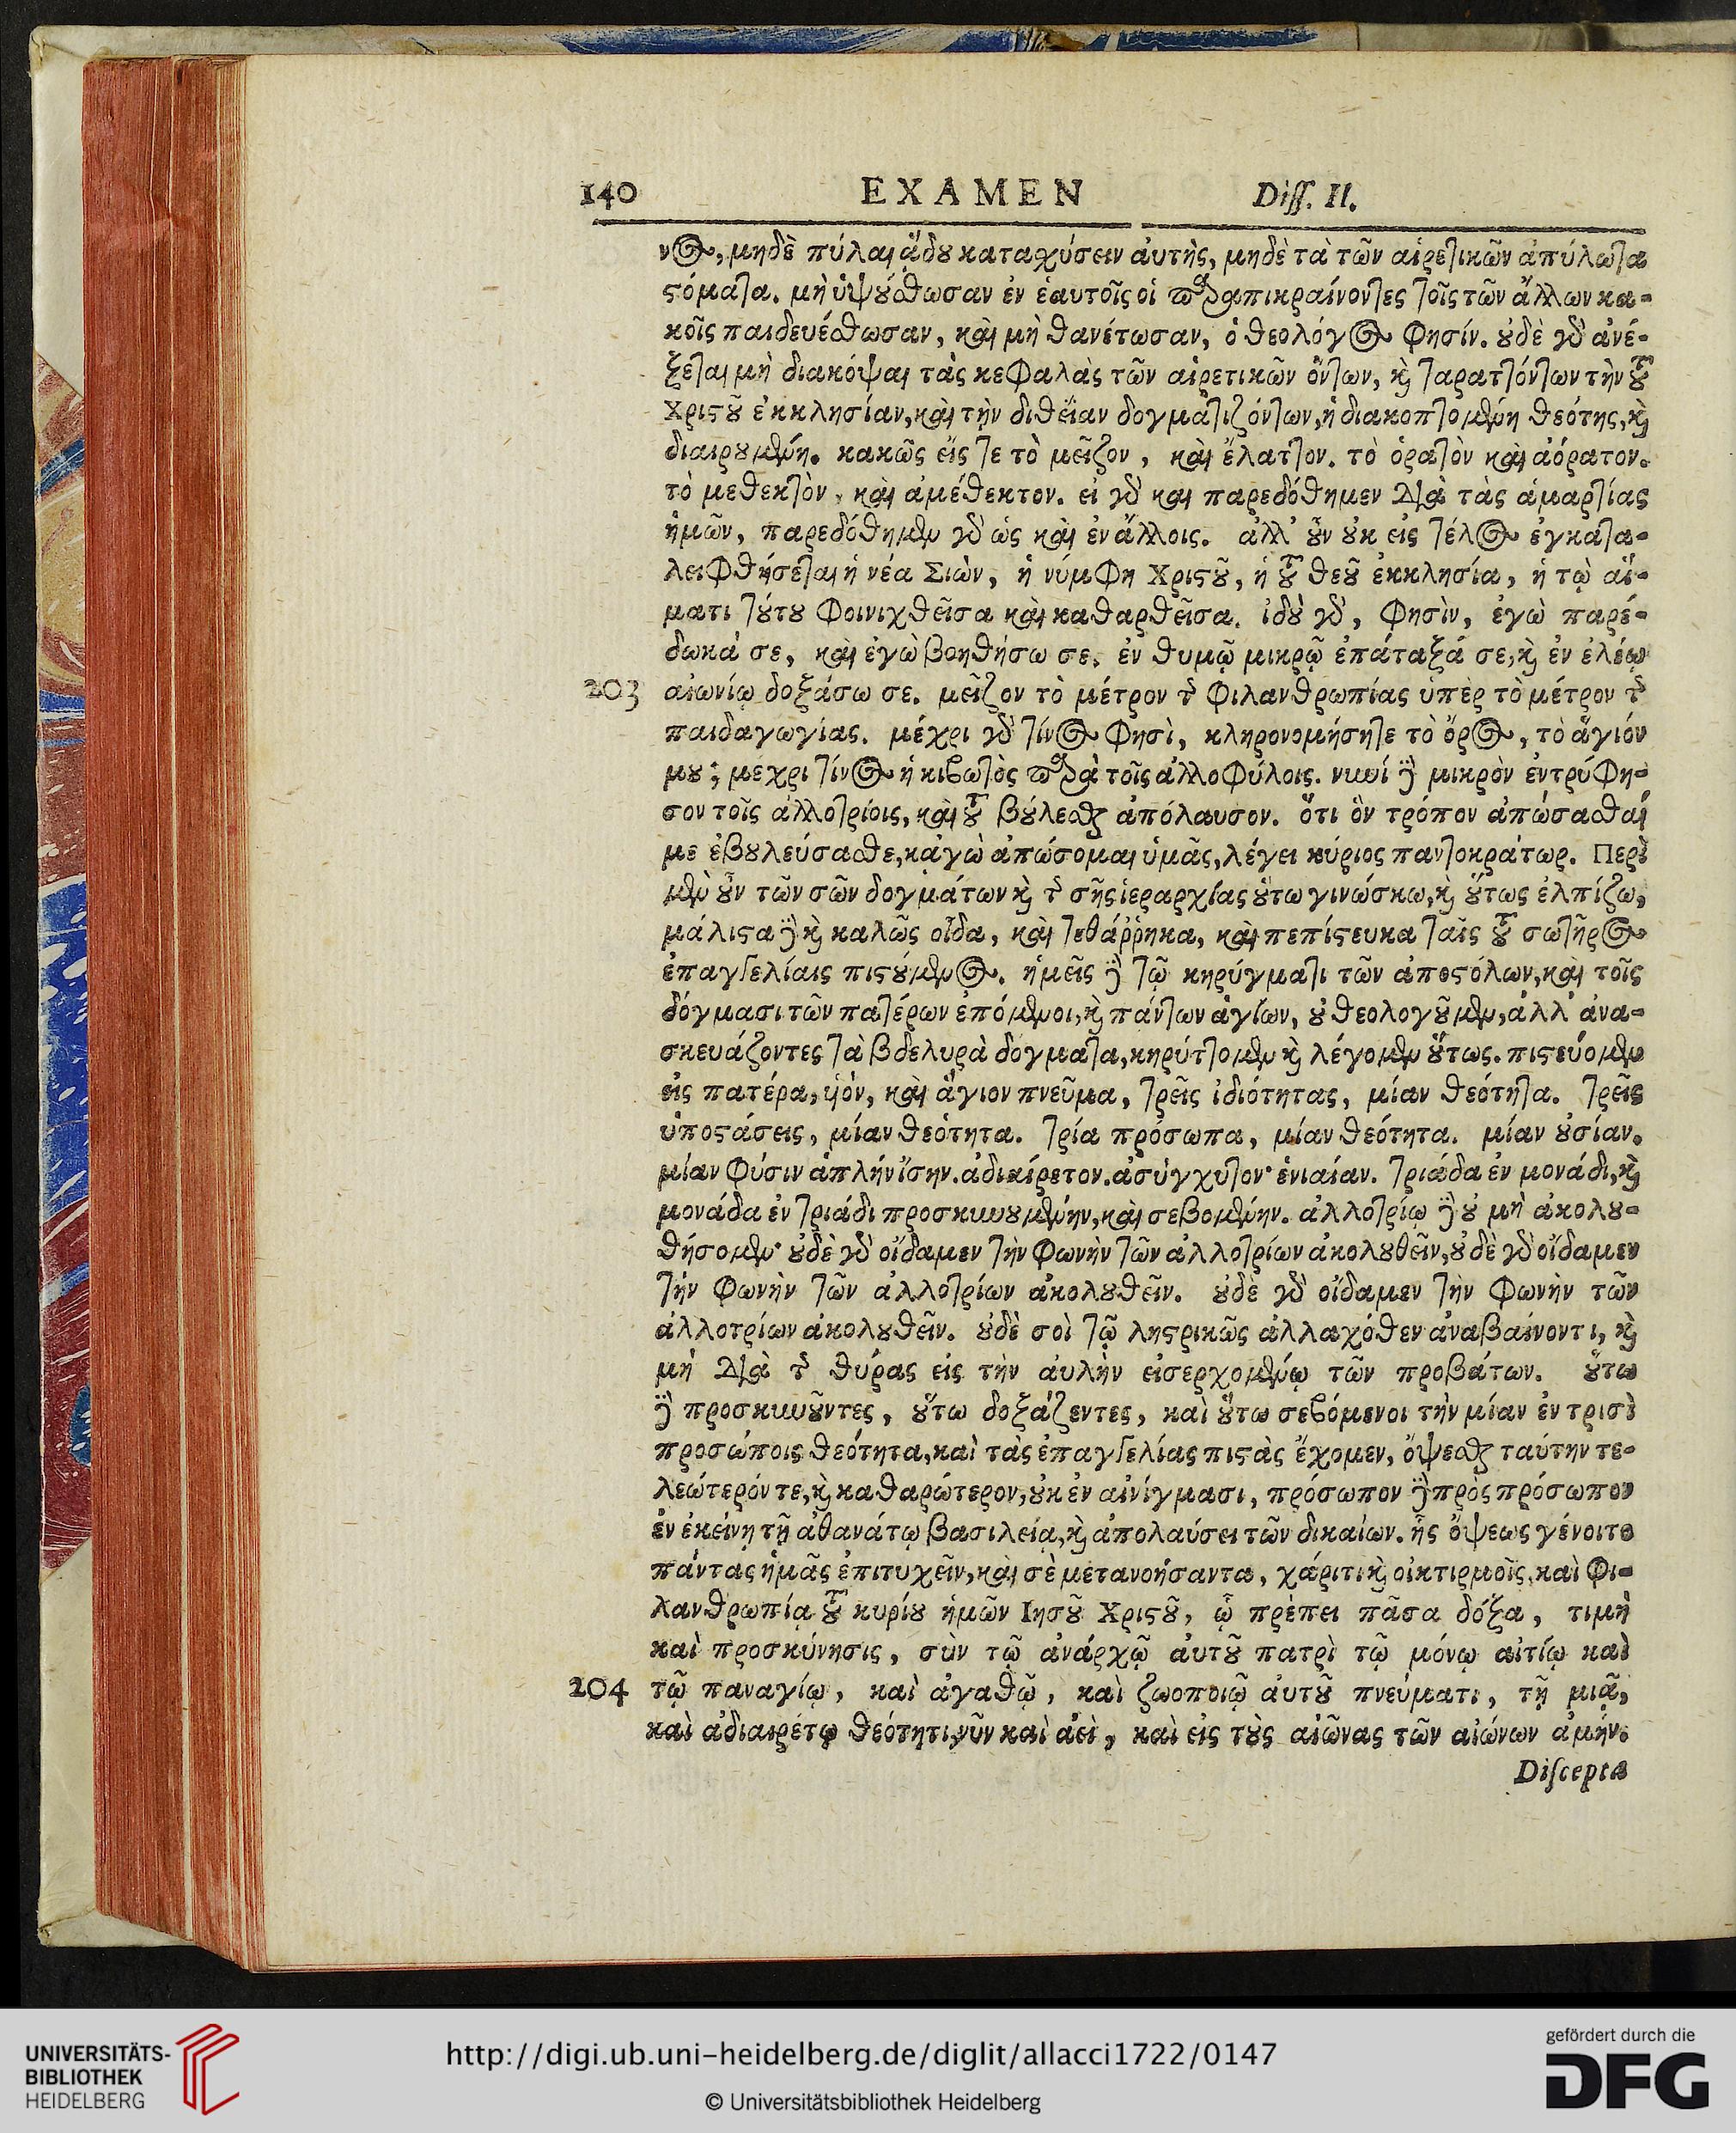 140 EXAMEN Diss. II.
νος, μηδὲ πύλαι ᾅδου καταχύσειν ἀυτῆς, μηδὲ τὰ τῶν αἱρετικῶν ἀπύλωτα
στόματα. μὴ ὑψούσθωσαν ἐν ἑαυτοῖς οἱ παραπικραίνοντες τοῖς τῶν ἄλλων κα-
κοῖς παιδευέσθωσαν, καὶ μὴ θανέτωσαν, ὁ θεολόγος φησίν. οὐδὲ γὰρ ἀνέ-
ξεται μὴ διακόψαι τὰς κεφαλὰς τῶν αἱρετικῶν ὄντων, καὶ ταρατόντων τὴν τοῦ
Χριστοῦ ἐκκλησίαν, καὶ τὴν διθεΐαν δογματιζόντων, ἡ διακοπτομένη θεότης, καὶ
διαιρουμένη. κακῶς εἴς τε τὸ μεῖζον, καὶ ἔλαττον. τὸ ὁρατὸν καὶ ἀόρατον.
τὸ μεθεκτὸν, καὶ ἀμέθεκτον. εἰ γὰρ καὶ παρεδόθημεν διὰ τὰς ἁμαρτίας
ἡμῶν, παρεδόθημεν γὰρ ὡς καὶ ἐν ἄλλοις. ἀλλ' οὖν οὐκ εἰς τέλος ἐγκατα-
λειφθήσεται ἡ νέα Σιὼν, ἡ νύμφη Χριστοῦ, ἡ τοῦ θεοῦ ἐκκλησία, ἡ τῷ αἵ-
ματι τούτου φοινιχθεῖσα καὶ καθαρθεῖσα. ἰδοὺ γὰρ, φησὶν, ἐγὼ παρέ-
δωκά σε, καὶ ἐγὼ βοηθήσω σε. ἐν θυμῷ μικρῷ ἐπάταξά σε, καὶ ἐν ἐλέῳ
203 αἰωνίῳ δοξάσω σε. μεῖζον τὸ μέτρον τῆς φιλανθρωπίας ὑπὲρ τὸ μέτρον τῆς
παιδαγωγίας. μέχρι γὰρ τίνος φησὶ, κληρονομήσητε τὸ ὄρος, τὸ ἅγιόν
μου; μεχρι τίνος ἡ κιβωτὸς παρὰ τοῖς ἀλλοφύλοις. νυνί δὲ μικρὸν ἐντρύφη-
σον τοῖς ἀλλοτρίοις, καὶ τοῦ βούλεσθαι ἀπόλαυσον. ὅτι ὃν τρόπον ἀπώσασθαί
με ἐβουλεύσασθε, κἀγὼ ἀπώσομαι ὑμᾶς, λέγει κύριος παντοκράτωρ. Περὶ
μὲν οὖν τῶν σῶν δογμάτων καὶ τῆς σῆς ἱεραρχίας οὕτω γινώσκω, καὶ οὕτως ἐλπίζω,
μάλιστα δὲ καὶ καλῶς οἶδα, καὶ τεθάῤῥηκα, καὶ πεπίστευκα ταῖς τοῦ σωτῆρος
ἐπαγγελίαις πιστούμενος. ἡμεῖς δὲ τῷ κηρύγματι τῶν ἀποστόλων, καὶ τοῖς
δόγμασι τῶν πατέρων ἑπόμενοι, καὶ πάντων ἁγίων, οὐ θεολογοῦμεν, ἀλλ' ἀνα-
σκευάζοντες τὰ βδελυρὰ δόγματα, κηρύττομεν καὶ λέγομεν οὕτως. πιστεύομεν
εἰς πατέρα, υἱόν, καὶ ἅγιον πνεῦμα, τρεῖς ἰδιότητας, μίαν θεότητα. τρεῖς
ὑποστάσεις, μίαν θεότητα. τρία πρόσωπα, μίαν θεότητα. μίαν οὐσίαν.
μίαν φύσιν ἁπλήν ἴσην. ἀδιαίρετον. ἀσύγχυτον· ἑνιαίαν. τριάδα ἐν μονάδι, καὶ
μονάδα ἐν τριάδι προσκυνουμένην, καὶ σεβομένην. ἀλλοτρίῳ δὲ οὐ μὴ ἀκολου-
θήσομεν· οὐδὲ γὰρ οἴδαμεν τὴν φωνὴν τῶν ἀλλοτρίων ἀκολουθεῖν, οὐδὲ γὰρ οἴδαμεν
τήν φωνὴν τῶν ἀλλοτρίων ἀκολουθεῖν. οὐδὲ γὰρ οἴδαμεν τὴν φωνὴν τῶν
ἀλλοτρίων ἀκολουθεῖν. οὐδὲ σοὶ τῷ ληστρικῶς ἀλλαχόθεν ἀναβαίνοντι, καὶ
μὴ διὰ τῆς θύρας εἰς τὴν ἀυλὴν εἰσερχομένῳ τῶν προβάτων. οὕτω
δὲ προσκυνοῦντες, οὕτω δοξάζεντες, καὶ οὕτω σεβόμενοι τὴν μίαν ἐν τρισὶ
προσώποις θεότητα, καὶ τὰς ἐπαγγελίας πιστὰς ἔχομεν, ὄψεσθαι ταύτην τε-
λεώτερόν τε, καὶ καθαρώτερον, οὐκ ἐν αἰνίγμασι, πρόσωπον δὲ πρὸς πρόσωπον
ἐν ἐκείνῃ τῇ ἀθανάτῳ βασιλείᾳ, καὶ ἀπολαύσει τῶν δικαίων. ἧς ὄψεως γένοιτο
πάντας ἡμᾶς ἐπιτυχεῖν, καὶ σὲ μετανοήσαντα, χάριτι καὶ οἰκτιρμοῖς, καὶ φι-
λανθρωπίᾳ τοῦ κυρίου ἡμῶν Ιησοῦ Χριστοῦ, ᾧ πρέπει πᾶσα δόξα, τιμὴ
καὶ προσκύνησις, σὺν τῷ ἀνάρχῷ ἀυτοῦ πατρὶ τῷ μόνῳ αἰτίῳ καὶ
204 τῷ παναγίῳ, καὶ ἀγαθῷ, καὶ ζωοποιῷ ἀυτοῦ πνεύματι, τῇ μιᾷ,
καὶ ἀδιαιρέτῳ θεότητι, νῦν καὶ ἀεὶ, καὶ εἰς τοὺς αἰῶνας τῶν αἰώνων ἀμήν.
Discepta
UNIVERSITÄTS-
BIBLIOTHEK
HEIDELBERG
http://digi.ub.uni-heidelberg.de/diglit/allacci1722/0147
© Universitätsbibliothek Heidelberg
gefördert durch die
DFG